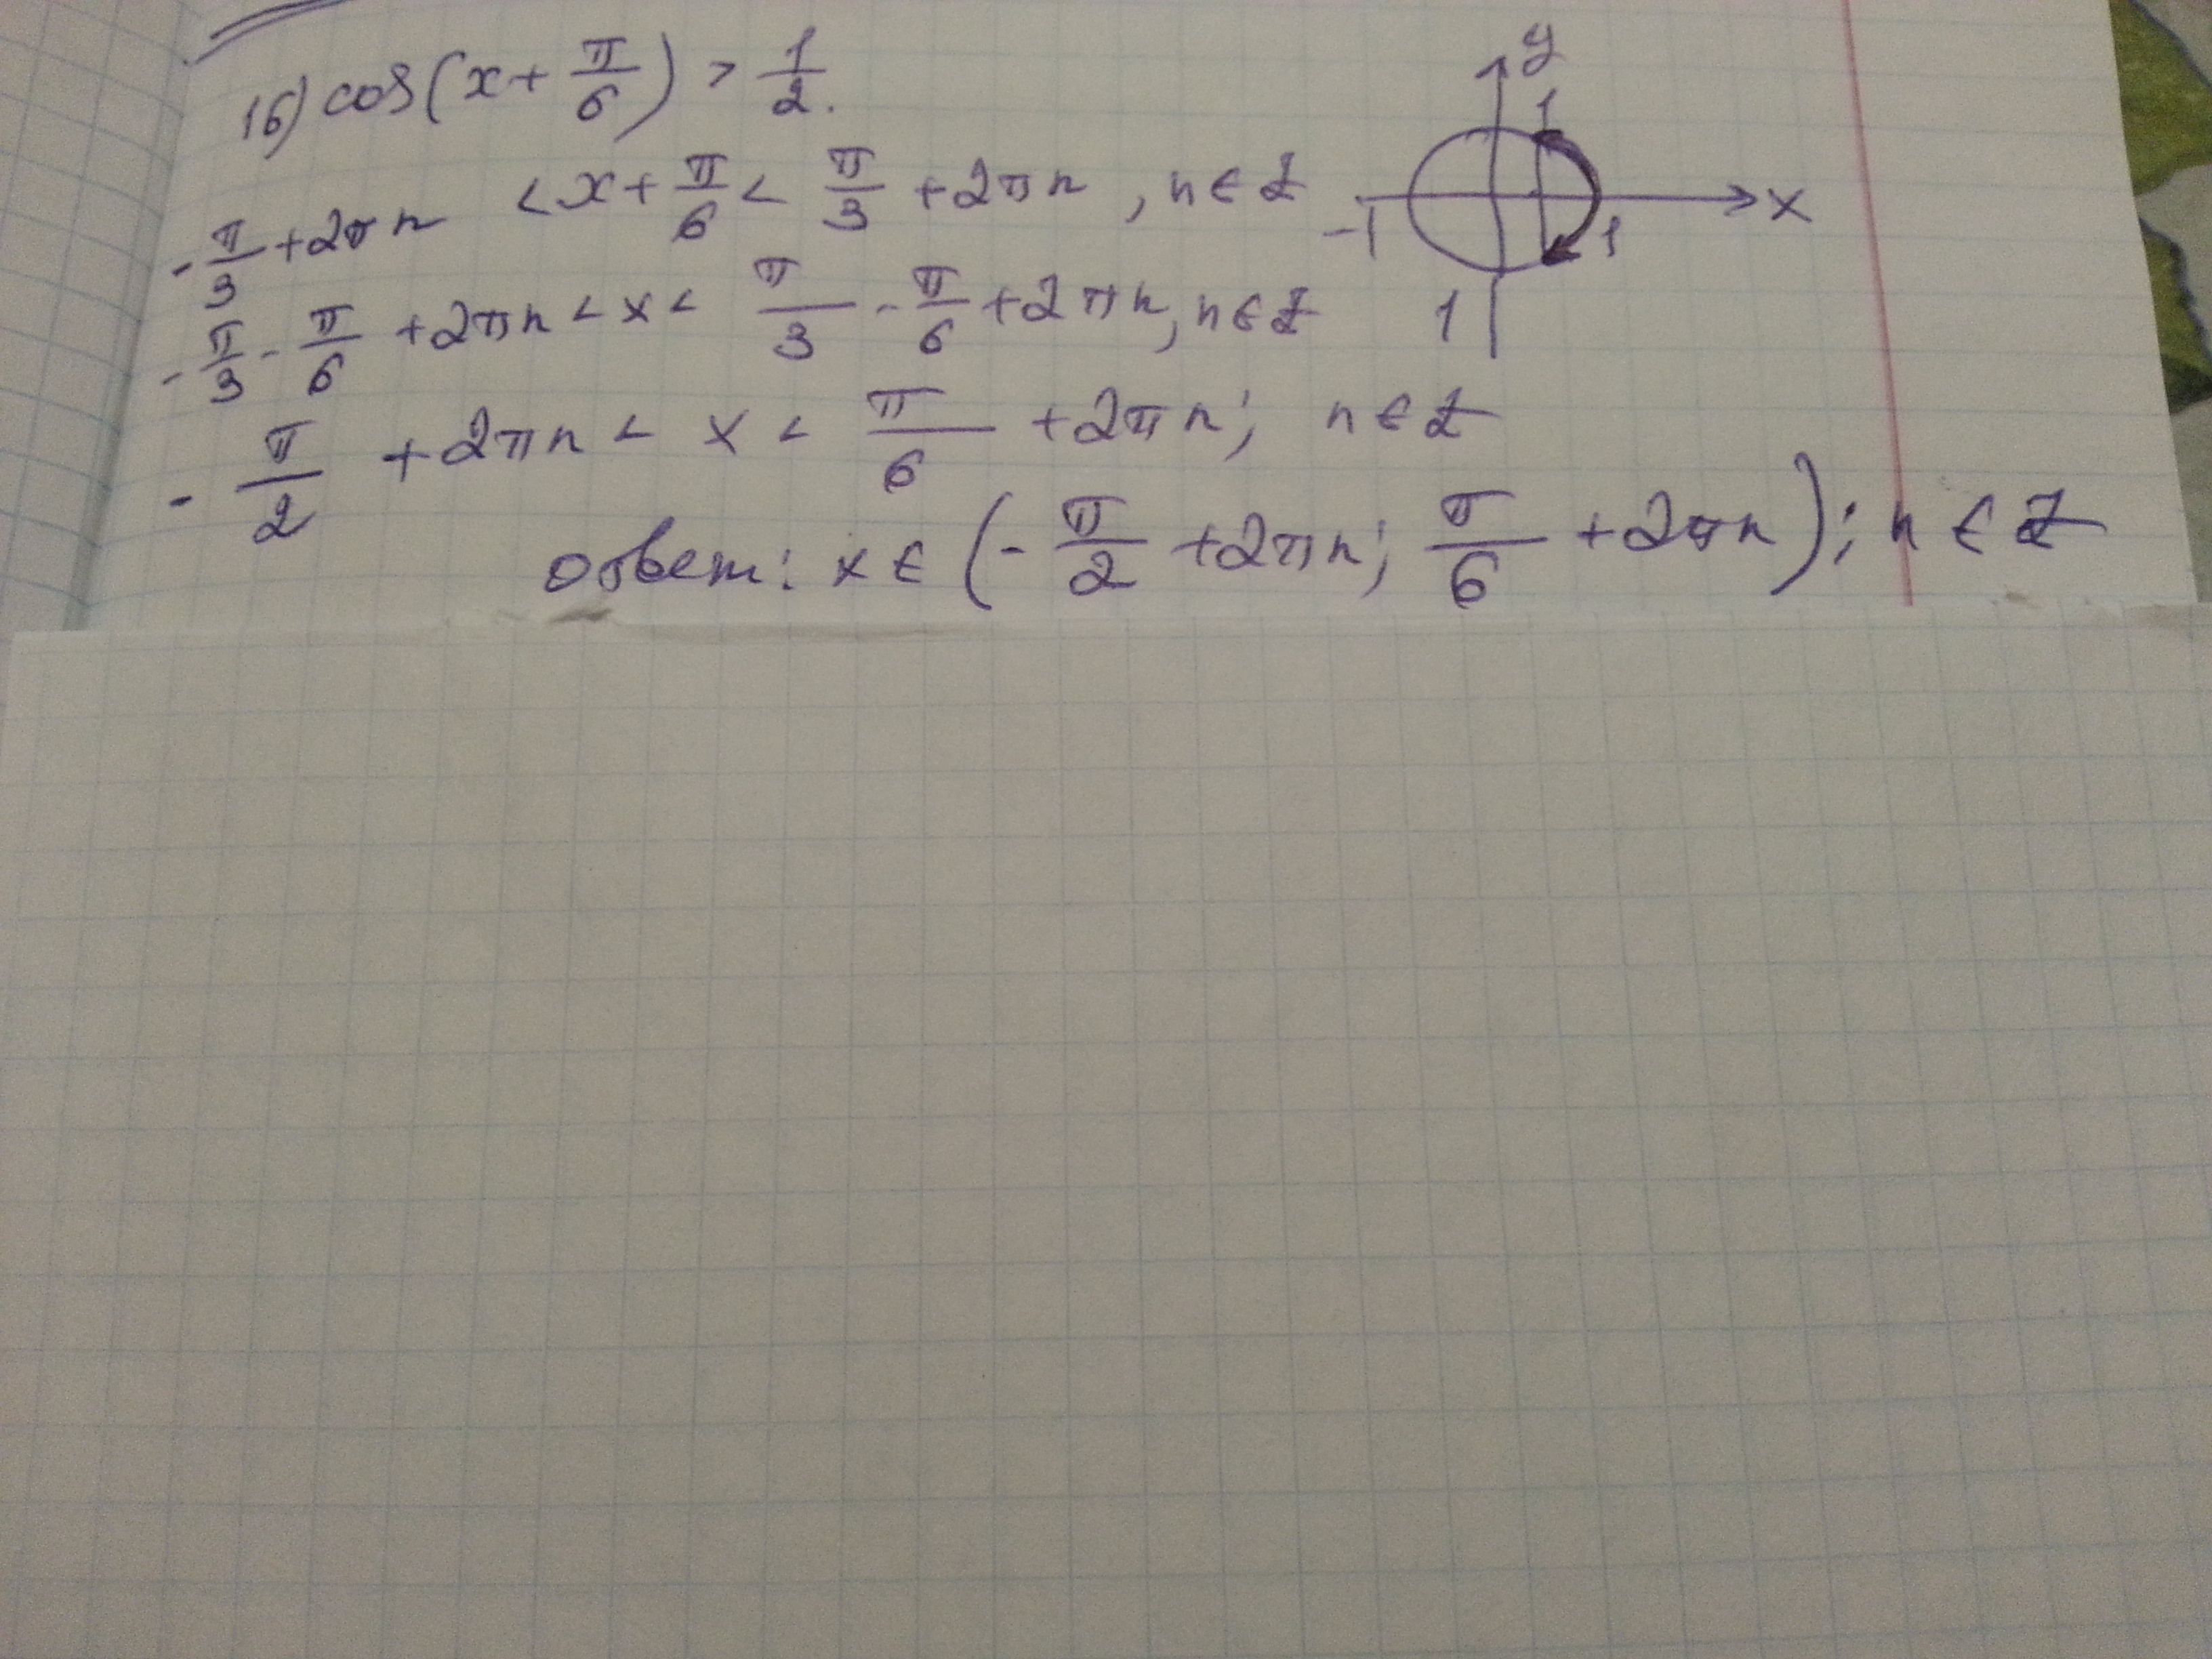 16) cos(x + π/6) > 1/2.
-π/3 + 2πn < x + π/6 < π/3 + 2πn, n ∈ Z
-π/3 - π/6 + 2πn < x < π/3 - π/6 + 2πn, n ∈ Z
-π/2 + 2πn < x < π/6 + 2πn; n ∈ Z
Ответ: x ∈ (-π/2 + 2πn; π/6 + 2πn); n ∈ Z
y
1
x
-1
1
1